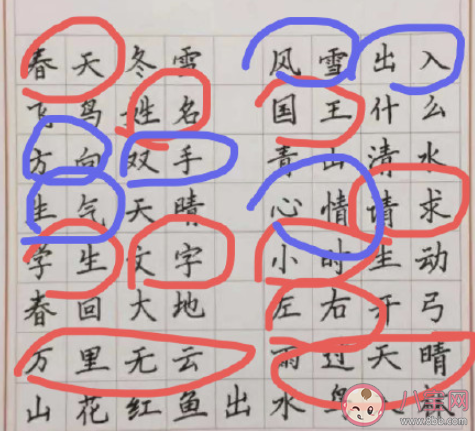 春天冬雪 风雪出入
飞鸟姓名 国王什么
方向双手 青山清水
生气天晴 心情请求
学生文字 小时生动
春回大地 左右开弓
万里无云 雨过天晴
山花红鱼出水鸟
八宝网
www.8bb.com